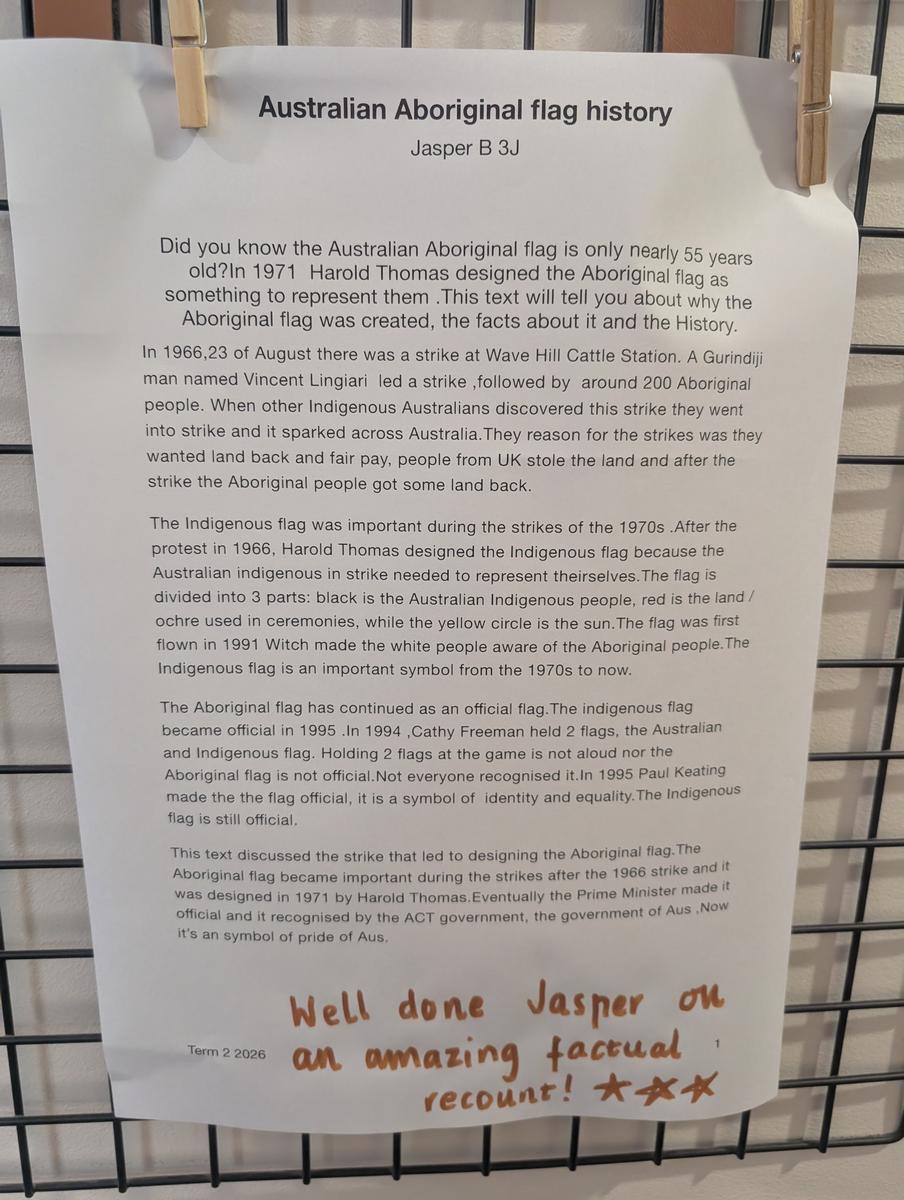 Australian Aboriginal flag history
Jasper B 3J
Did you know the Australian Aboriginal flag is only nearly 55 years
old?In 1971  Harold Thomas designed the Aboriginal flag as
something to represent them .This text will tell you about why the
Aboriginal flag was created, the facts about it and the History.
In 1966,23 of August there was a strike at Wave Hill Cattle Station. A Gurindiji
man named Vincent Lingiari  led a strike ,followed by  around 200 Aboriginal
people. When other Indigenous Australians discovered this strike they went
into strike and it sparked across Australia.They reason for the strikes was they
wanted land back and fair pay, people from UK stole the land and after the
strike the Aboriginal people got some land back.
The Indigenous flag was important during the strikes of the 1970s .After the
protest in 1966, Harold Thomas designed the Indigenous flag because the
Australian indigenous in strike needed to represent theirselves.The flag is
divided into 3 parts: black is the Australian Indigenous people, red is the land /
ochre used in ceremonies, while the yellow circle is the sun.The flag was first
flown in 1991 Witch made the white people aware of the Aboriginal people.The
Indigenous flag is an important symbol from the 1970s to now.
The Aboriginal flag has continued as an official flag.The indigenous flag
became official in 1995 .In 1994 ,Cathy Freeman held 2 flags, the Australian
and Indigenous flag. Holding 2 flags at the game is not aloud nor the
Aboriginal flag is not official.Not everyone recognised it.In 1995 Paul Keating
made the the flag official, it is a symbol of  identity and equality.The Indigenous
flag is still official.
This text discussed the strike that led to designing the Aboriginal flag.The
Aboriginal flag became important during the strikes after the 1966 strike and it
was designed in 1971 by Harold Thomas.Eventually the Prime Minister made it
official and it recognised by the ACT government, the government of Aus .Now
it's an symbol of pride of Aus.
Well done Jasper on
an amazing factual
recount!
Term 2 2026
1